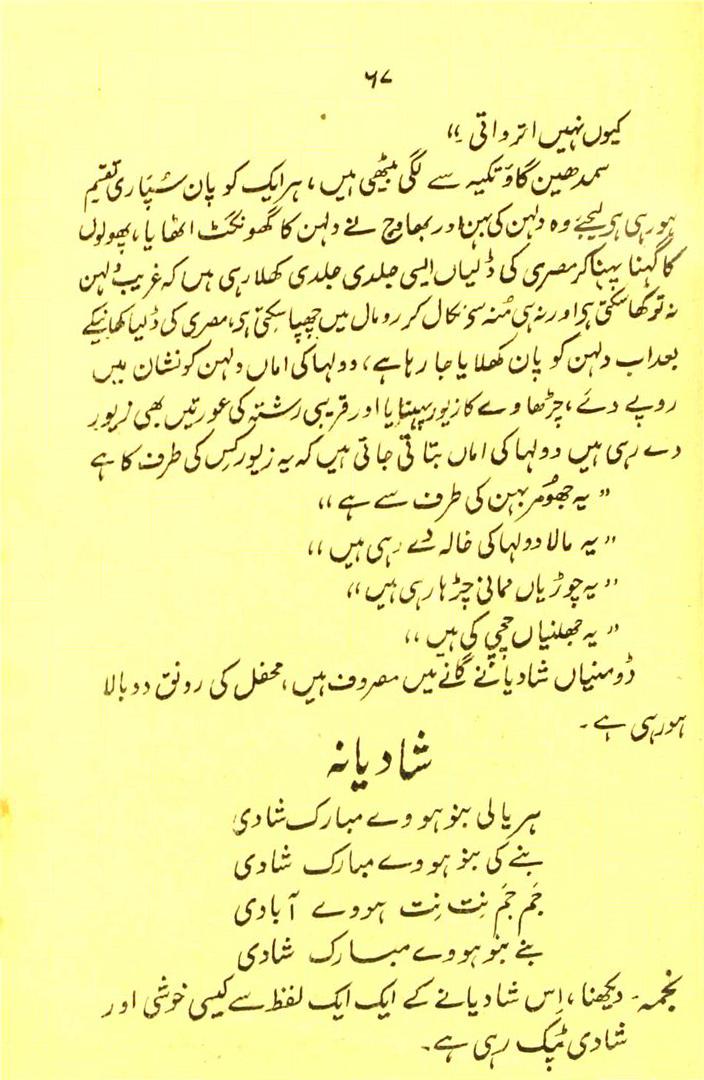 ۶۷
کیوں نہیں اترواتی ۔"
سمدھین گاؤ تکیہ سے لگی بیٹھی ہیں، ہر ایک کو پان سُپاری تقیم
ہو رہی ہی لیجئے وہ دلہن کی بہن اور بھاوج نے دلہن کا گھونگٹ اٹھایا، پھولوں
کا گہنا پہنا کر مصری کی ڈلیاں ایسی جلدی جلدی کھلا رہی ہیں کہ غریب دُلہن
نہ تو کھا سکتی ہی اور نہ ہی مُنہ سی نکال کر رومال میں چھپا سکتی ہی، مصری کی ڈلیا کھانیکے
بعد اب دلہن کو پان کھلایا جا رہا ہے، دولہا کی اماں دلہن کو نشان میں
روپے دئے، چڑھاوے کا زیور پہنایا اور قریبی رشتہ کی عورتیں بھی زیور
دے رہی ہیں دولہا کی اماں بتاتی جاتی ہیں کہ یہ زیور کس کی طرف کا ہے
"یہ جھومر بہن کی طرف سے ہے"
"یہ مالا دولہا کی خالہ دے رہی ہیں"
"یہ چوڑیاں ممانی چڑہا رہی ہیں"
"یہ جھلنیاں چچی کی ہیں"
ڈومنیاں شادیانے گانے میں مصروف ہیں، محفل کی رونق دوبالا
ہو رہی ہے۔
شادیانہ
ہریالی بنو ہووے مبارک شادی
بنے کی بنو ہووے مبارک شادی
جَم جَم نِت نِت ہووے آبادی
بنے بنو ہووے مبارک شادی
نجمہ۔ دیکھنا، اِس شادیانے کے ایک ایک لفظ سے کیسی خوشی اور
شادی ٹپک رہی ہے۔